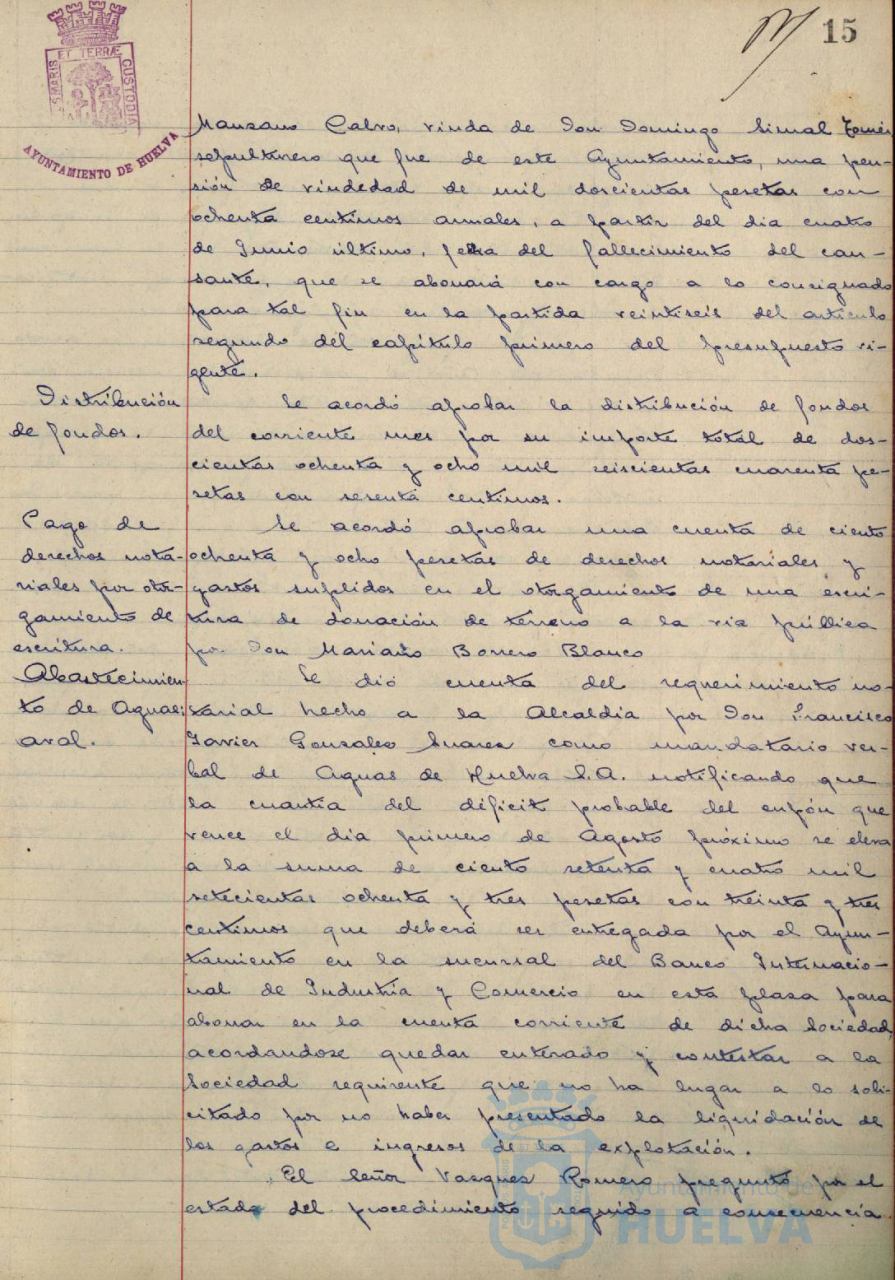 15
S MARIS ET TERRÆ CUSTODIA
AYUNTAMIENTO DE HUELVA
Manzano Calvo, viuda de Don Domingo Simal
sepulturero que fue de este Ayuntamiento, una pen-
sión de viudedad de mil doscientas pesetas con
ochenta centimos anuales, a partir del dia cuatro
de Junio último, fecha del fallecimiento del cau-
sante, que se abonará con cargo a lo consignado
para tal fin en la partida veintiseis del articulo
segundo del capítulo primero del presupuesto vi-
gente.
Distribución
de fondos.
Se acordó aprobar la distribución de fondos
del corriente mes por su importe total de dos-
cientas ochenta y ocho mil seiscientas cuarenta pe-
setas con sesenta centimos.
Pago de
derechos nota-
riales por otor-
gamiento de
escritura.
Se acordó aprobar una cuenta de ciento
ochenta y ocho pesetas de derechos notariales y
gastos suplidos en el otorgamiento de una escri-
tura de donación de terreno a la via pública
por Don Mariano Borrero Blanco
Abastecimien-
to de Aguas:
aval.
Se dió cuenta del requerimiento no-
tarial hecho a la Alcaldia por Don Francisco
Javier Gonzalez Suarez como mandatario ver-
bal de Aguas de Huelva S.A. notificando que
la cuantia del déficit probable del cupón que
vence el dia primero de Agosto próximo se eleva
a la suma de ciento setenta y cuatro mil
setecientas ochenta y tres pesetas con treinta y tres
centimos que deberá ser entregada por el Ayun-
tamiento en la sucursal del Banco Internacio-
nal de Industria y Comercio en esta plaza para
abonar en la cuenta corriente de dicha Sociedad,
acordandose quedar enterado y contestar a la
Sociedad requirente que no ha lugar a lo soli-
citado por no haber presentado la liquidación de
los gastos e ingresos de la explotación.
El Señor Vazquez Romero preguntó por el
estado del procedimiento seguido a consecuencia
Ayuntamiento de
HUELVA